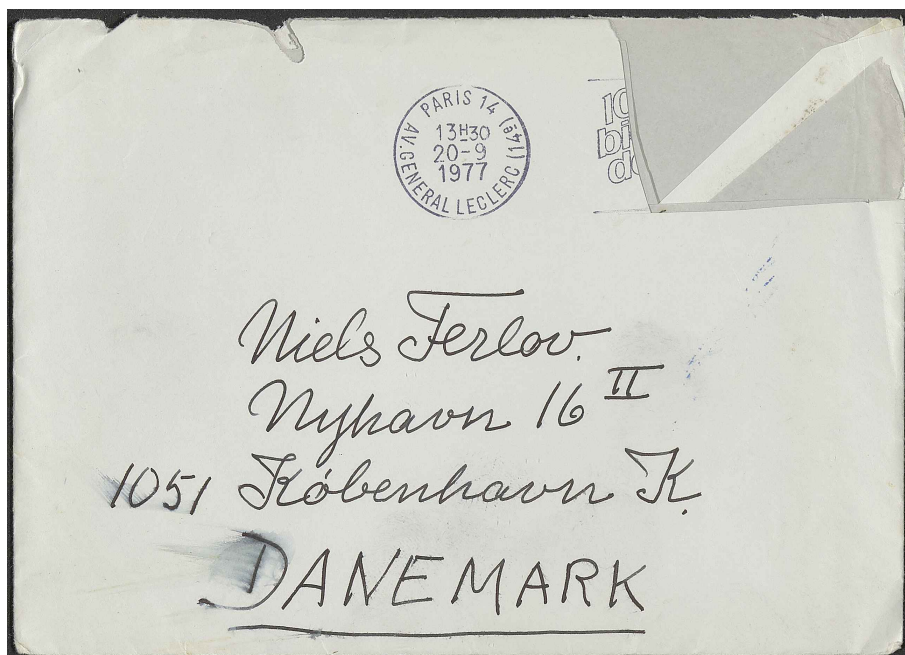 PARIS 14 (14e)
13H30
20-9
1977
AV. GENERAL LECLERC
Niels Ferlov.
Nyhavn 16 II
1051 København K.
DANEMARK